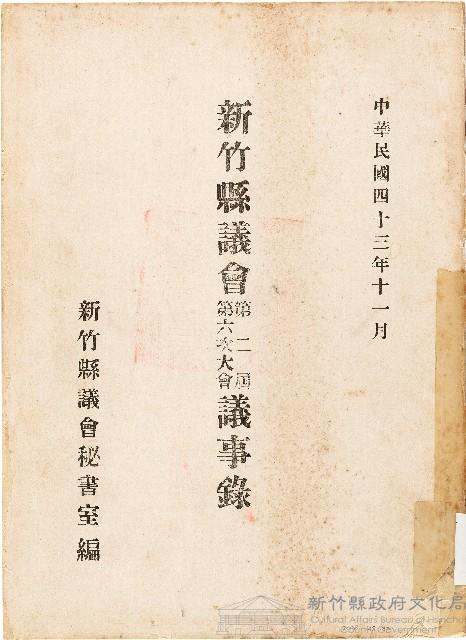 中華民國四十三年十一月
新竹縣議會第二屆第六次大會議事錄
新竹縣議會秘書室編
新竹縣政府文化局
Cultural Affairs Bureau of Hsinchu County Government